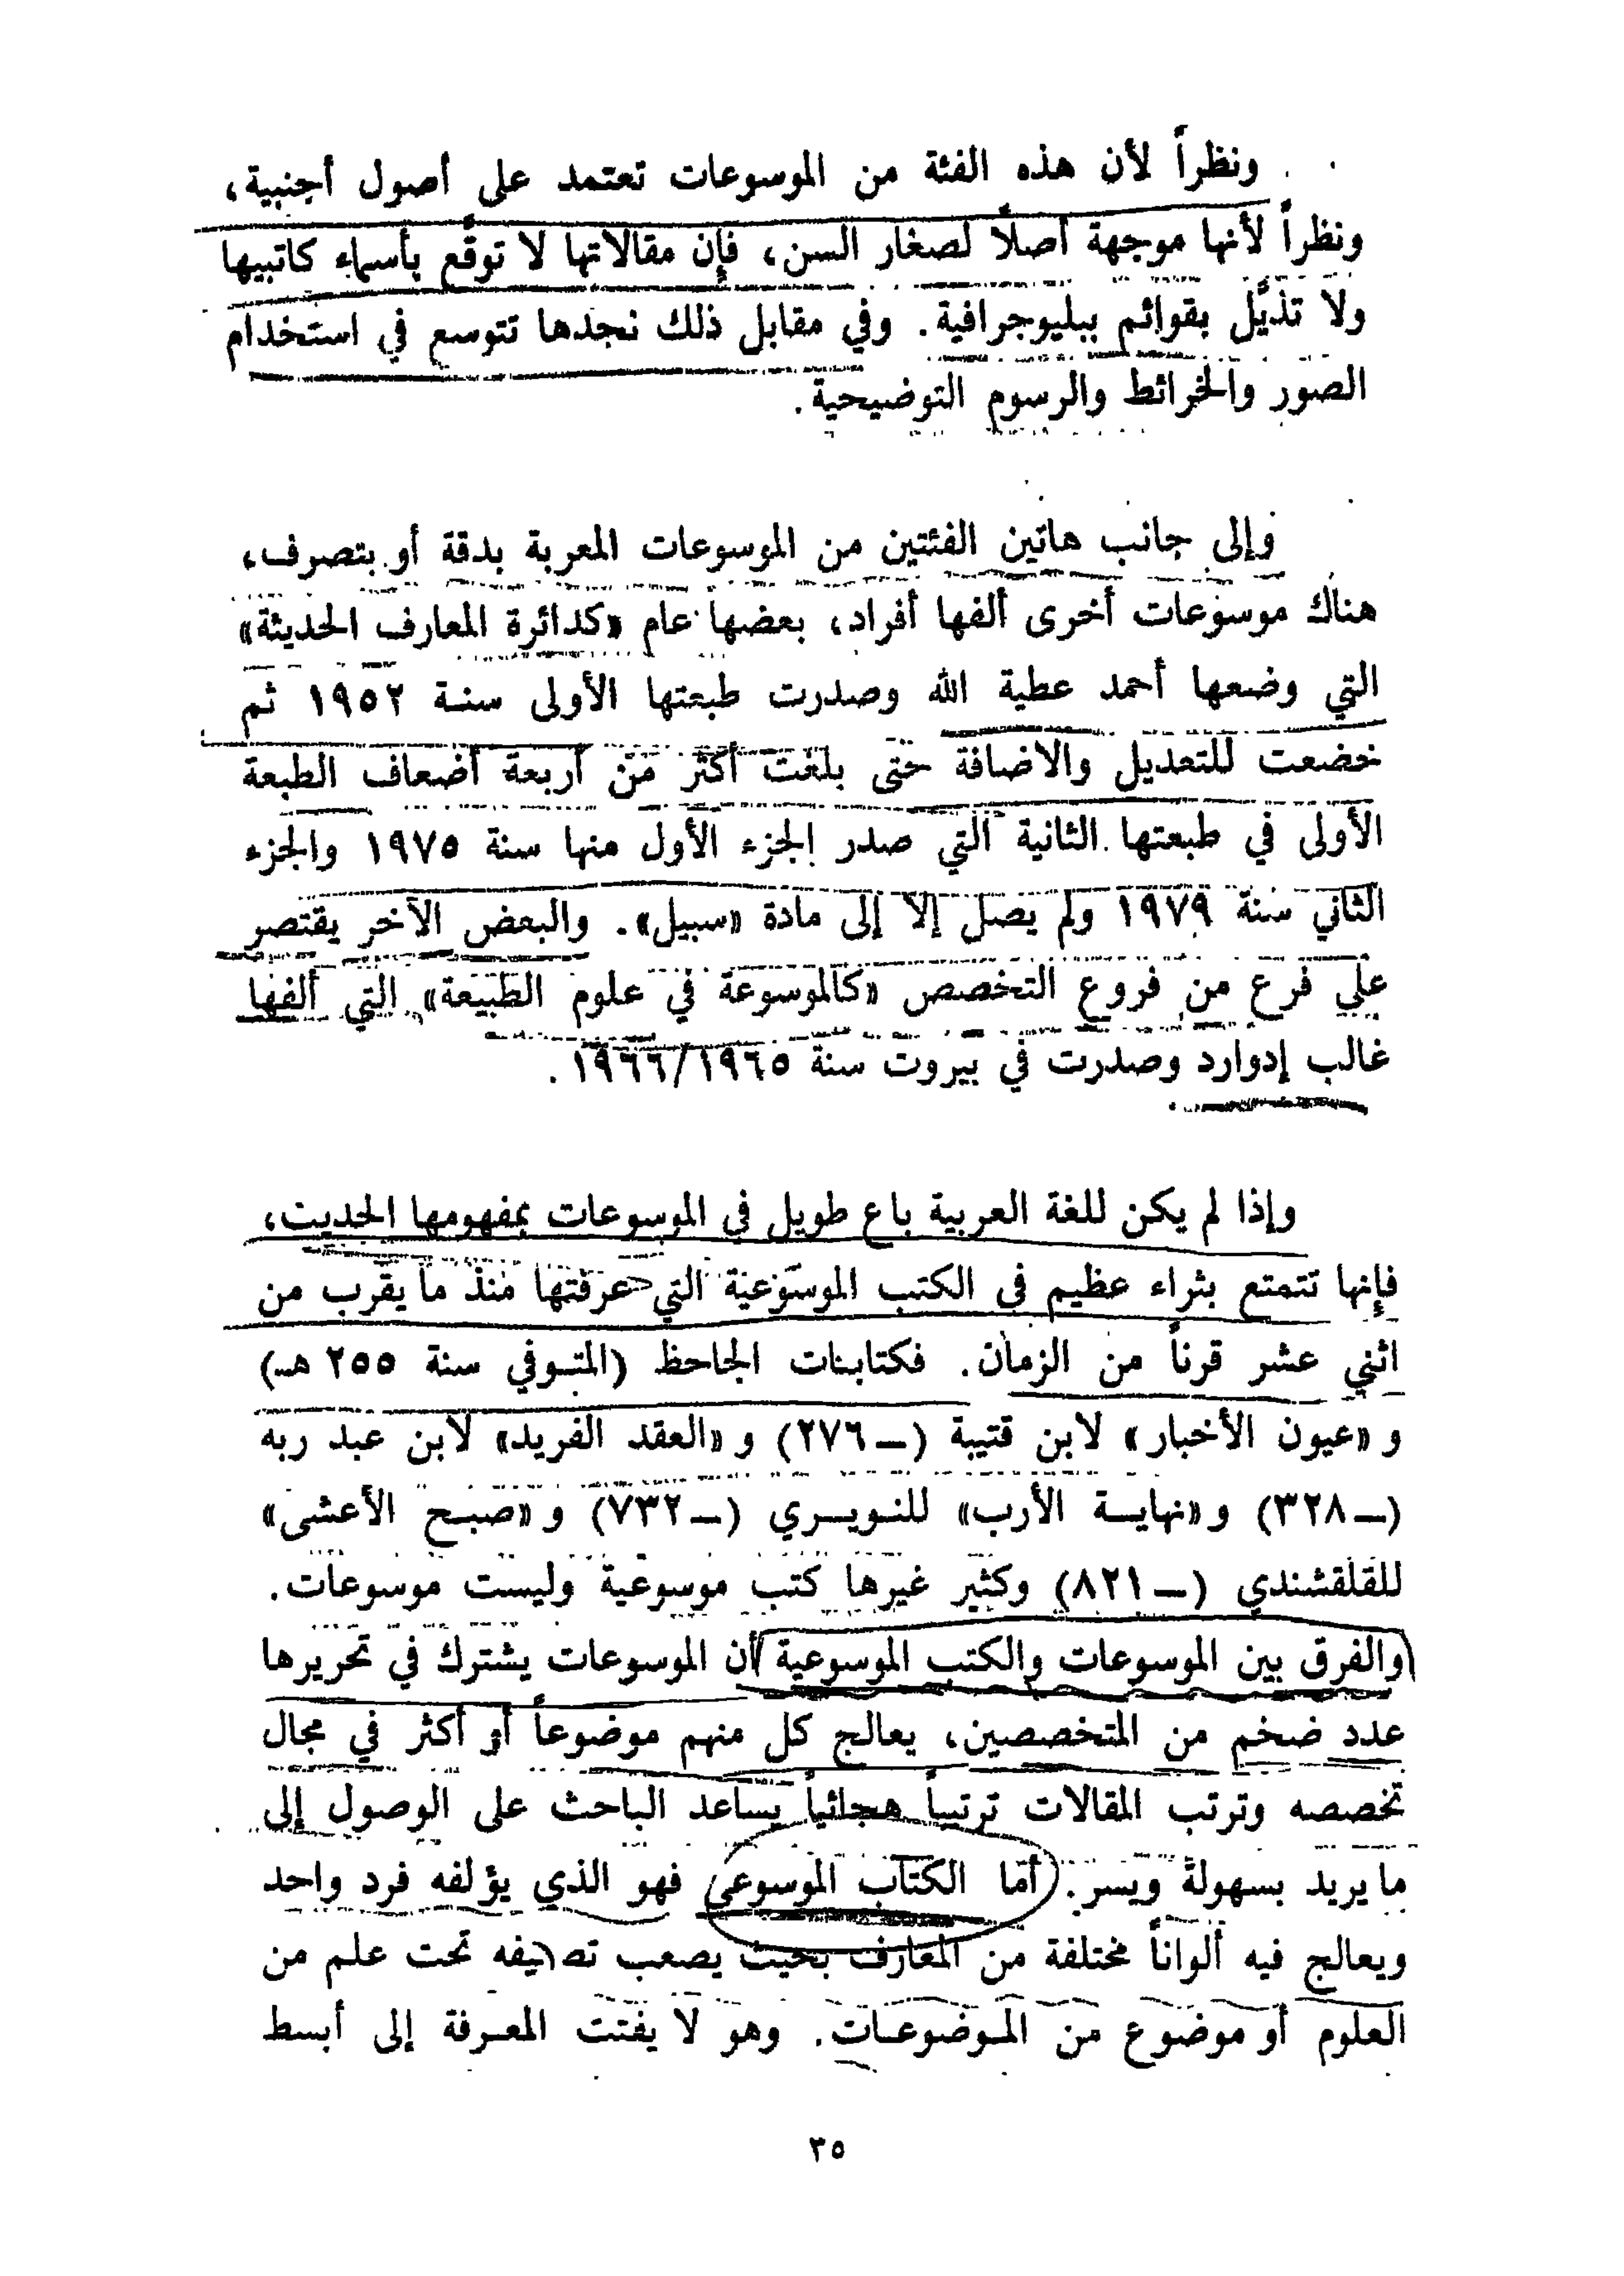 ونظراً لأن هذه الفئة من الموسوعات تعتمد على أصول أجنبية،
ونظراً لأنها موجهة أصلاً لصغار السن، فإن مقالاتها لا توقَّع بأسماء كاتبيها
ولا تذيَّل بقوائم ببليوجرافية. وفي مقابل ذلك نجدها تتوسع في استخدام
الصور والخرائط والرسوم التوضيحية.
وإلى جانب هاتين الفئتين من الموسوعات المعربة بدقة أو بتصرف،
هناك موسوعات أخرى ألفها أفراد، بعضها عام «كدائرة المعارف الحديثة»
التي وضعها أحمد عطية الله وصدرت طبعتها الأولى سنة ١٩٥٢ ثم
خضعت للتعديل والاضافة حتى بلغت أكثر من أربعة أضعاف الطبعة
الأولى في طبعتها الثانية التي صدر الجزء الأول منها سنة ١٩٧٥ والجزء
الثاني سنة ١٩٧٩ ولم يصل إلا إلى مادة «سبيل». والبعض الآخر يقتصر
على فرع من فروع التخصص «كالموسوعة في علوم الطبيعة» التي ألفها
غالب إدوارد وصدرت في بيروت سنة ١٩٦٦/١٩٦٥.
وإذا لم يكن للغة العربية باع طويل في الموسوعات بمفهومها الحديث،
فإنها تتمتع بثراء عظيم في الكتب الموسوعية التي عرفتها منذ ما يقرب من
اثني عشر قرناً من الزمان. فكتابات الجاحظ (المتوفي سنة ٢٥٥ هـ)
و «عيون الأخبار» لابن قتيبة (ــ ٢٧٦) و «العقد الفريد» لابن عبد ربه
(ــ ٣٢٨) و «نهاية الأرب» للنويري (ــ ٧٣٢) و «صبح الأعشى»
للقلقشندي (ــ ٨٢١) وكثير غيرها كتب موسوعية وليست موسوعات.
والفرق بين الموسوعات والكتب الموسوعية أن الموسوعات يشترك في تحريرها
عدد ضخم من المتخصصين، يعالج كل منهم موضوعاً أو أكثر في مجال
تخصصه وترتب المقالات ترتيباً هجائياً يساعد الباحث على الوصول إلى
ما يريد بسهولة ويسر. أما الكتاب الموسوعي فهو الذي يؤلفه فرد واحد
ويعالج فيه ألواناً مختلفة من المعارف بحيث يصعب تصنيفه تحت علم من
العلوم أو موضوع من الموضوعات. وهو لا يفتت المعرفة إلى أبسط
٣٥